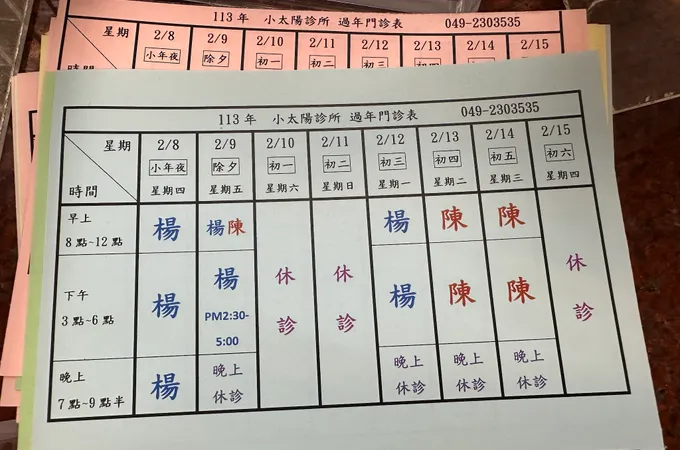 113年 小太陽診所 過年門診表 049-2303535
星期 2/8 2/9 2/10 2/11 2/12 2/13 2/14 2/15
小年夜 除夕 初一 初二 初三 初四
時間
113年 小太陽診所 過年門診表 049-2303535
星期 2/8 2/9 2/10 2/11 2/12 2/13 2/14 2/15
小年夜 除夕 初一 初二 初三 初四 初五 初六
時間 星期四 星期五 星期六 星期日 星期一 星期二 星期三 星期四
早上
8點~12點 楊 楊陳 休診 休診 楊 陳 陳 休診
下午
3點~6點 楊 楊 楊 陳 陳
PM2:30-
5:00
晚上
7點~9點半 楊 晚上 晚上 晚上 晚上
休診 休診 休診 休診